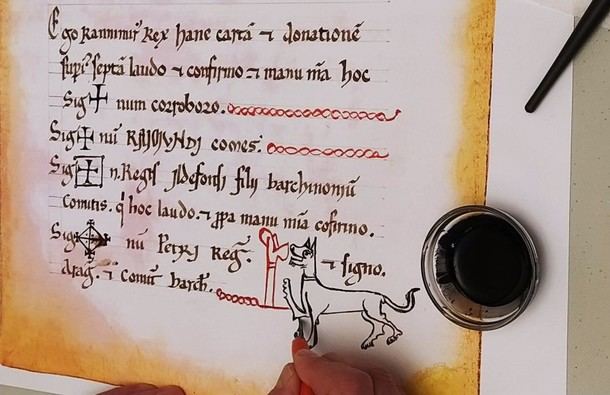 Ego Ranimirꝰ Rex hanc cartā ⁊ donationē
supᵃ septā laudo ⁊ confirmo ⁊ manu m̄a hoc
Sig num corroboro.
Sig nū RAIMUNDI comes.
Sig n. Regis Ildefonsi filii barchinoniū
Comitis. qⁱ hoc laudo ⁊ ꝓpa manu mīa cōfirmo.
Sig nū PETRI Reg. ⁊ signo.
Arag. ⁊ Comit barch.